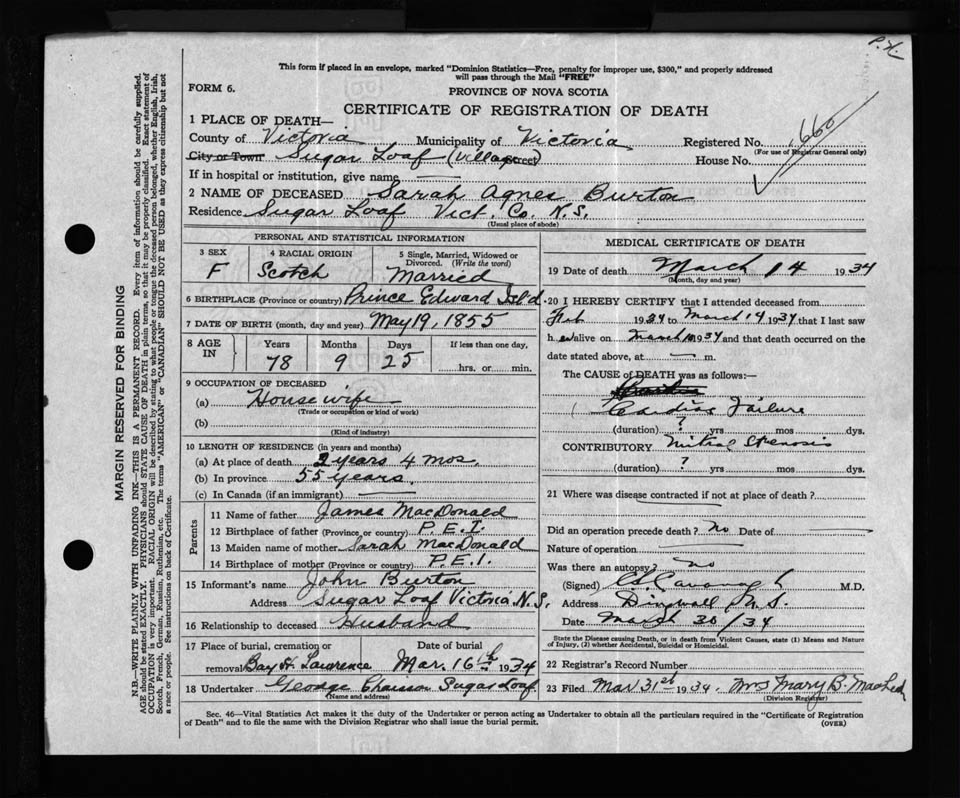 P.H.
This form if placed in an envelope, marked "Dominion Statistics—Free, penalty for improper use, $300," and properly addressed
will pass through the Mail "FREE"
FORM 6.
PROVINCE OF NOVA SCOTIA
CERTIFICATE OF REGISTRATION OF DEATH
1 PLACE OF DEATH—
County of Victoria Municipality of Victoria Registered No. 660
(For use of Registrar General only)
City or Town Sugar Loaf (Village) House No.
If in hospital or institution, give name —
2 NAME OF DECEASED Sarah Agnes Burton
Residence Sugar Loaf Vict. Co. N.S.
(Usual place of abode)
PERSONAL AND STATISTICAL INFORMATION
3 SEX F
4 RACIAL ORIGIN Scotch
5 Single, Married, Widowed or
Divorced. (Write the word)
Married
6 BIRTHPLACE (Province or country) Prince Edward Isl'd
7 DATE OF BIRTH (month, day and year) May 19, 1855
8 AGE IN
Years Months Days If less than one day,
78 9 25 ....hrs. or ....min.
9 OCCUPATION OF DECEASED
(a) Housewife
(Trade or occupation or kind of work)
(b)
(Kind of industry)
10 LENGTH OF RESIDENCE (in years and months)
(a) At place of death 2 years 4 mos.
(b) In province 55 years.
(c) In Canada (if an immigrant) —
Parents
11 Name of father James MacDonald
12 Birthplace of father (Province or country) P.E.I.
13 Maiden name of mother Sarah MacDonald
14 Birthplace of mother (Province or country) P.E.I.
15 Informant's name John Burton
Address Sugar Loaf Victoria N.S.
16 Relationship to deceased Husband
17 Place of burial, cremation or
removal Bay St Lawrence
Date of burial
Mar. 16th 1934
18 Undertaker George Chaisson Sugar Loaf
(Name and address)
MEDICAL CERTIFICATE OF DEATH
19 Date of death March 14 1934
(Month, day and year)
20 I HEREBY CERTIFY that I attended deceased from
Feb 1934 to March 14 1934 that I last saw
h er alive on March 1934 and that death occurred on the
date stated above, at — m.
The CAUSE of DEATH was as follows:—
Cardiac Failure
(duration) ? yrs mos dys.
CONTRIBUTORY Mitral Stenosis
(duration) ? yrs mos dys.
21 Where was disease contracted if not at place of death?
Did an operation precede death? No Date of —
Nature of operation —
Was there an autopsy? no
(Signed) Cavanagh M.D.
Address Dingwall N.S.
Date March 30/34
State the Disease causing Death, or in death from Violent Causes, state (1) Means and Nature
of Injury, (2) whether Accidental, Suicidal or Homicidal.
22 Registrar's Record Number
23 Filed Mar 31st 1934. Mrs Mary B. MacLeod
(Division Registrar)
Sec. 46—Vital Statistics Act makes it the duty of the Undertaker or person acting as Undertaker to obtain all the particulars required in the "Certificate of Registration
of Death" and to file the same with the Division Registrar who shall issue the burial permit.
(OVER)
MARGIN RESERVED FOR BINDING
N.B.—WRITE PLAINLY WITH UNFADING INK—THIS IS A PERMANENT RECORD. Every item of information should be carefully supplied.
AGE should be stated EXACTLY. PHYSICIANS should STATE CAUSE OF DEATH in plain terms, so that it may be properly classified. Exact statement of
OCCUPATION is very important. RACIAL ORIGIN will be described by stating to what people or tongue the deceased person belonged, whether English, Irish,
Scotch, French, German, Russian, Ruthenian, etc. The terms "AMERICAN" or "CANADIAN" SHOULD NOT BE USED as they express citizenship but not
a race or people. See instructions on back of Certificate.